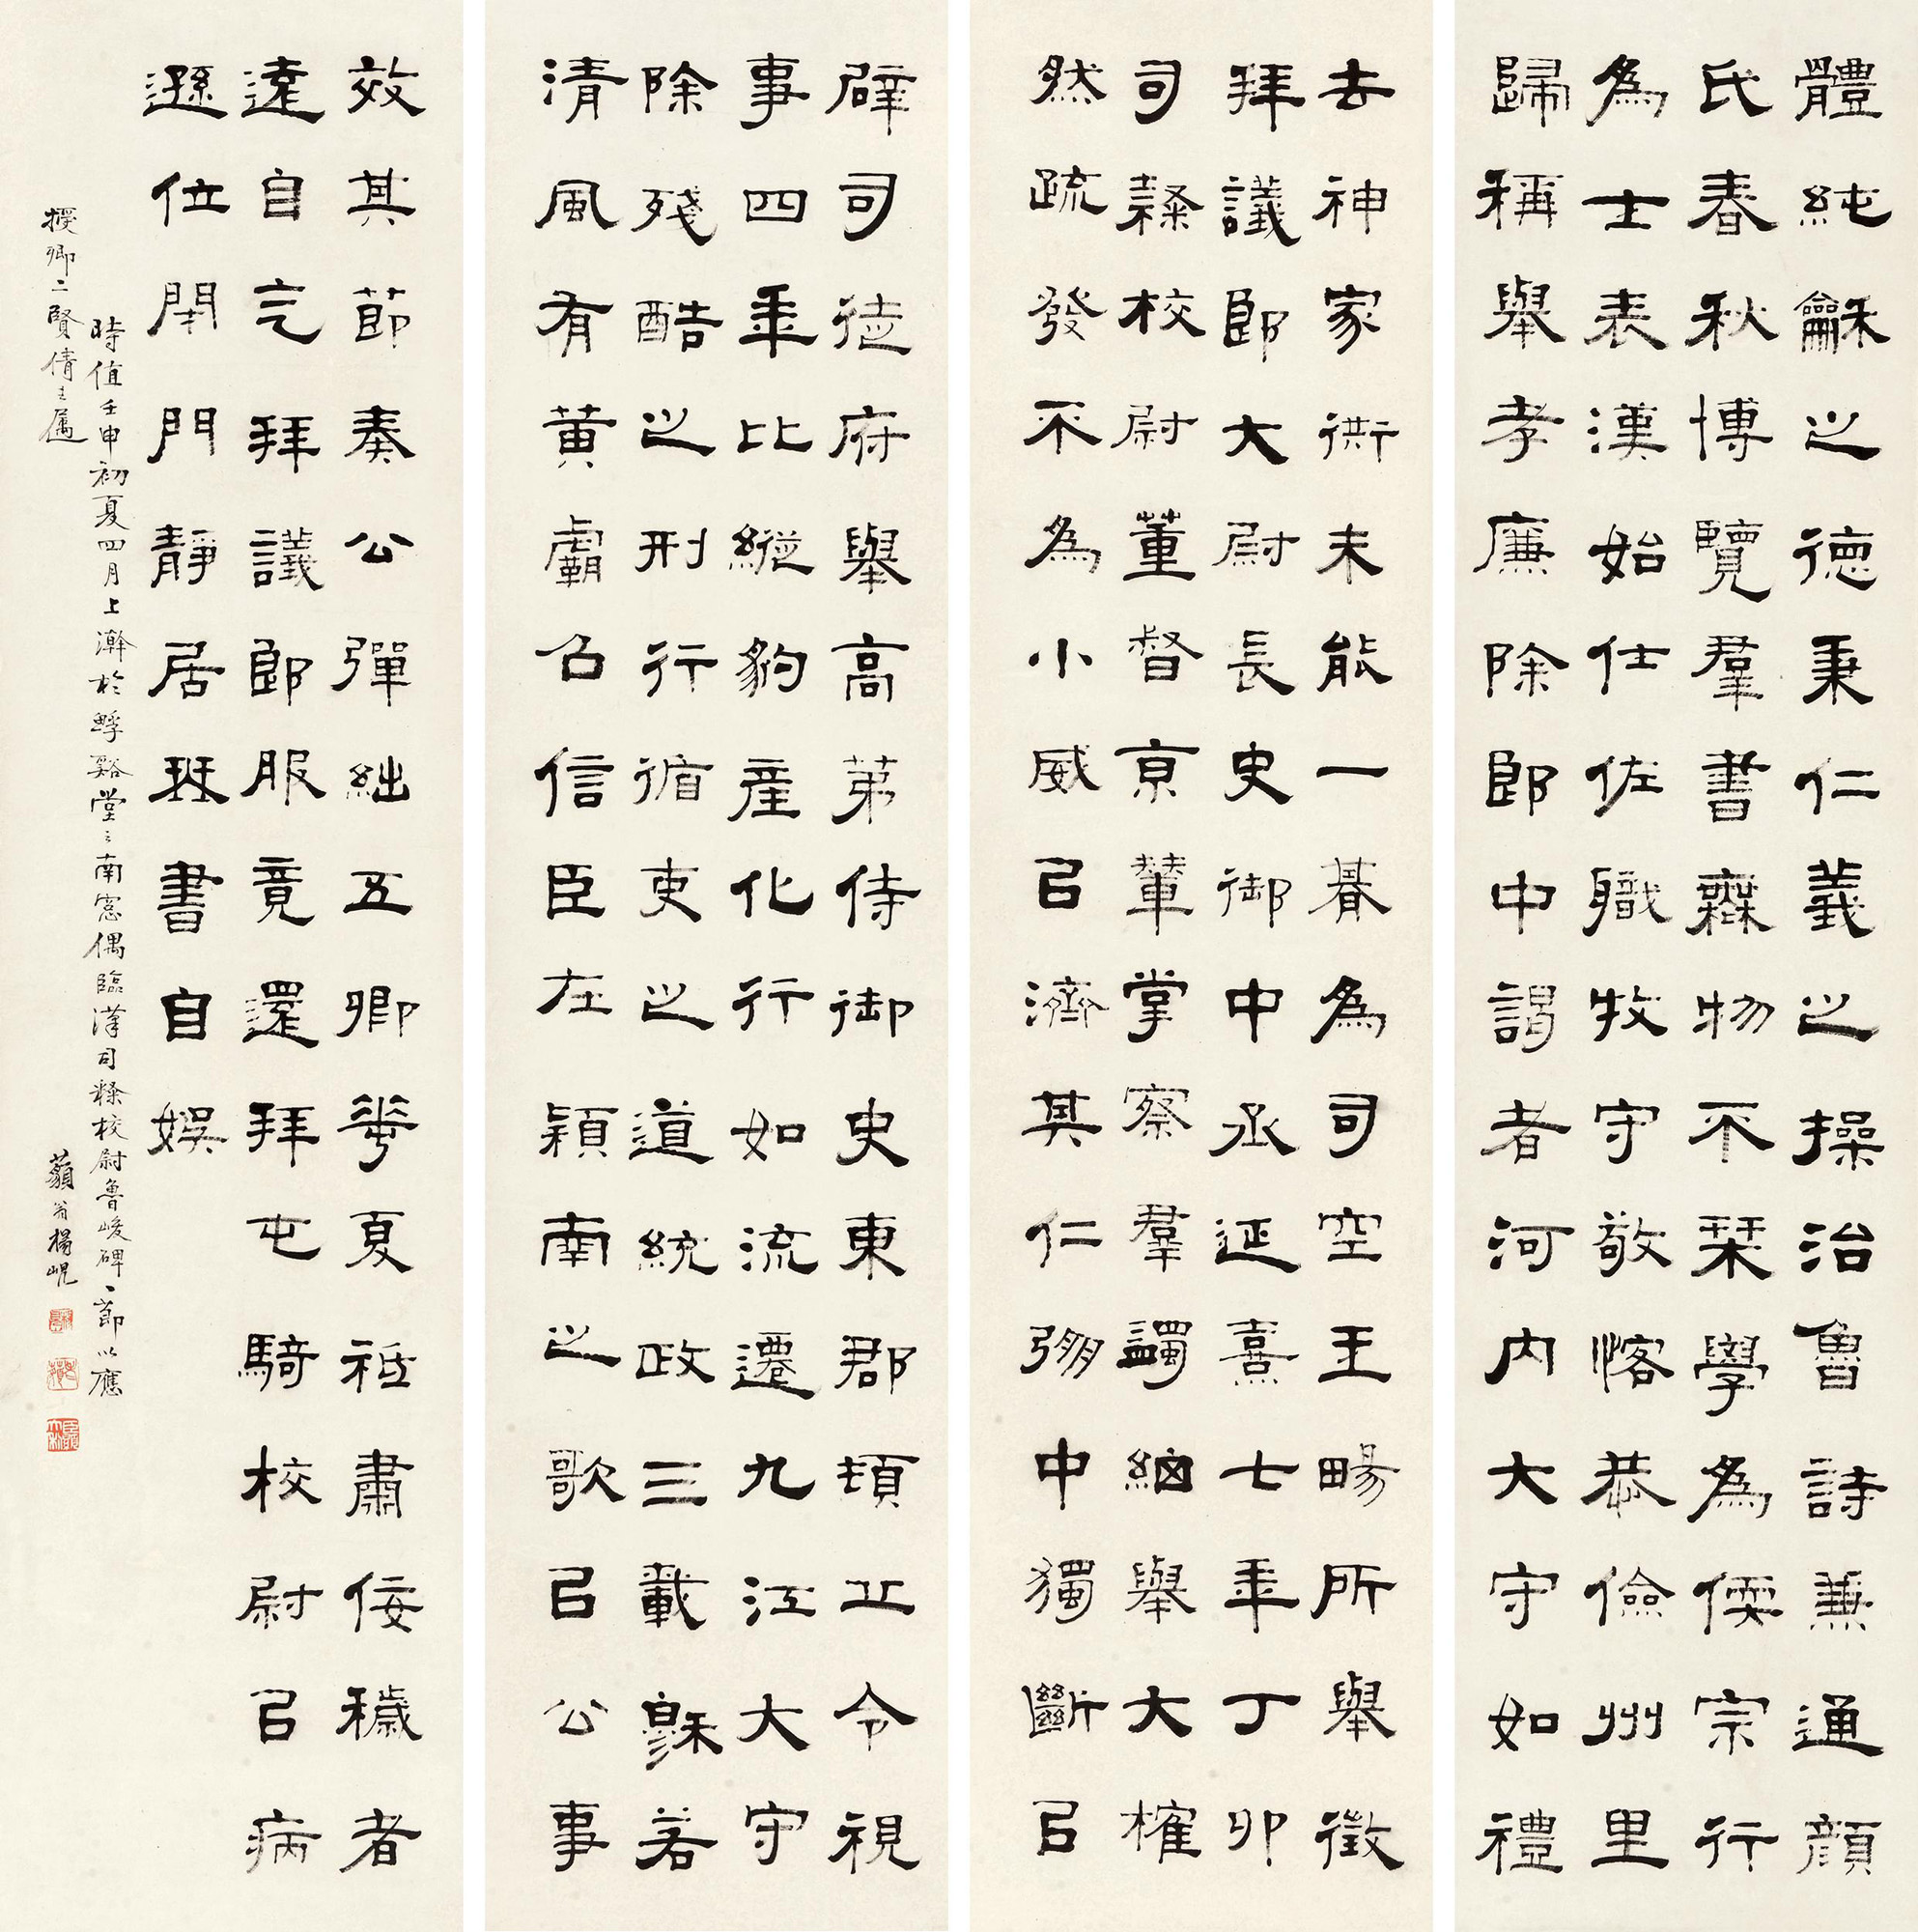 體純龢之德秉仁義之操治魯詩兼通顏
氏春秋博覽羣書無物不栞學為偄宗行
為士表漢始仕佐職牧守敬恪恭儉州里
歸稱舉孝廉除郎中謁者河內大守如禮
去神家衖未能一朞為司空王暢所舉徵
拜議郎大尉長史御中丞延熹七年丁卯
司隸校尉董督京輦掌察羣蠲細舉大榷
然疏發不為小威㠯濟其仁弸中獨斷㠯
辟司徒府舉高第侍御史東郡頓丘令視
事四年比縱豹產化行如流遷九江大守
除殘酷之刑行循吏之道統政三載穆若
清風有黃霸召信臣在潁南之歌㠯公事
效其節奏公彈絀五卿華夏祗肅佞穢者
遠自乞拜議郎服竟還拜屯騎校尉㠯病
遜位閉門靜居琴書自娛
時值壬申初夏四月上澣於蜉谿堂之南窗偶臨漢司隸校尉魯峻碑一節以應
授卿二賢倩之屬
藐翁楊峴